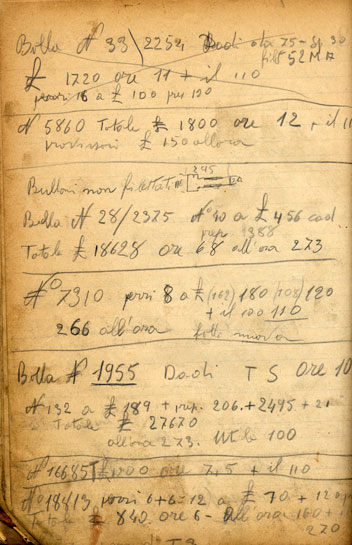 Bolla N 33\2252 Dadi 75 - Sp 30
52 MA
£ 1720 ore 11 + il 110
pezzi 16 a £ 100 prep 120
N 5860 Totale £ 1800 ore 12 + il 11
£ 150 all'ora
Bulloni non filettati
245
Bolla N 28/2375 N° 40 a £ 456 cad
prep 1388
Totale £ 18628 ore 68 all'ora 273
N° 7310 pezzi 8 a £ (162) 180 (108) 120
+ il 100 110
266 all'ora
Bolla N 1955 Dadi T S ore 10
N 132 a £ 189 + prep. 206. + 2495 + 21
Totale £ 27670
all'ora 273. 100
N 16685 T £ 1200 ore 7,5 + il 110
N° 18813 pezzi 6+6-12 a £ 70 + 120
Totale £ 840 ore 6 - all'ora 160 +
270